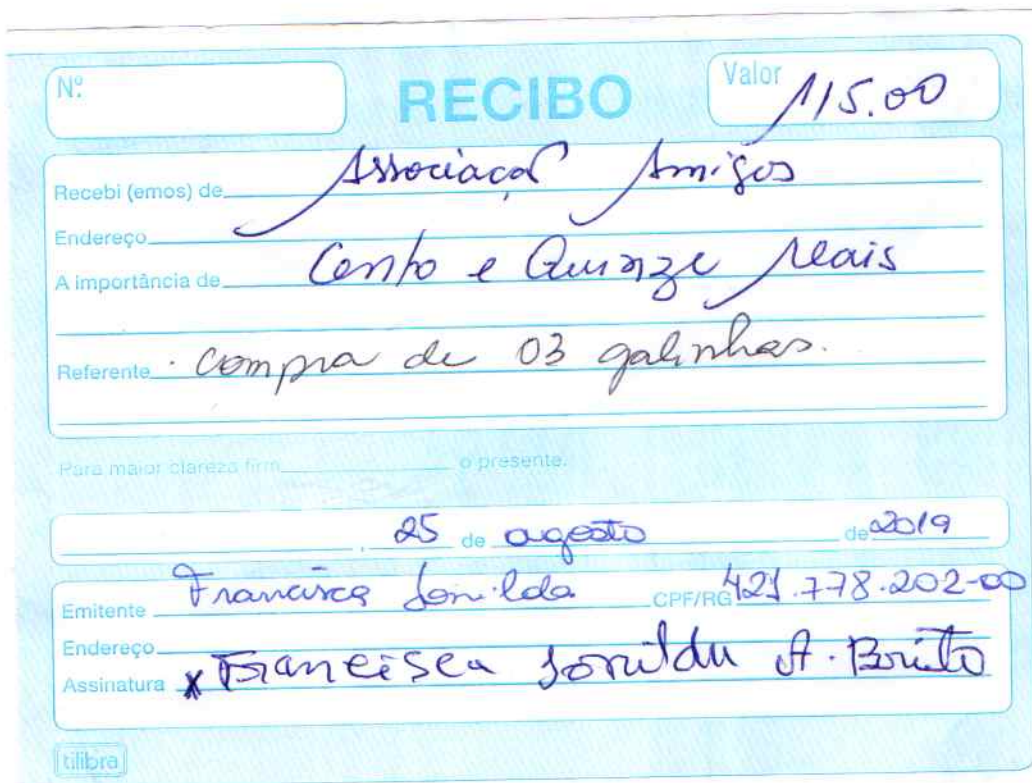 Nº
RECIBO
Valor 115.00
Recebi (emos) de Associaçao Amigos
Endereço
A importância de Cento e Quinze reais
Referente . compra de 03 galinhas.
Para maior clareza firm o presente.
, 25 de agosto de 2019
Emitente Francisca Jonilda CPF/RG 421.778.202-00
Endereço
Assinatura x Francisca Jonilda A. Brito
tilibra